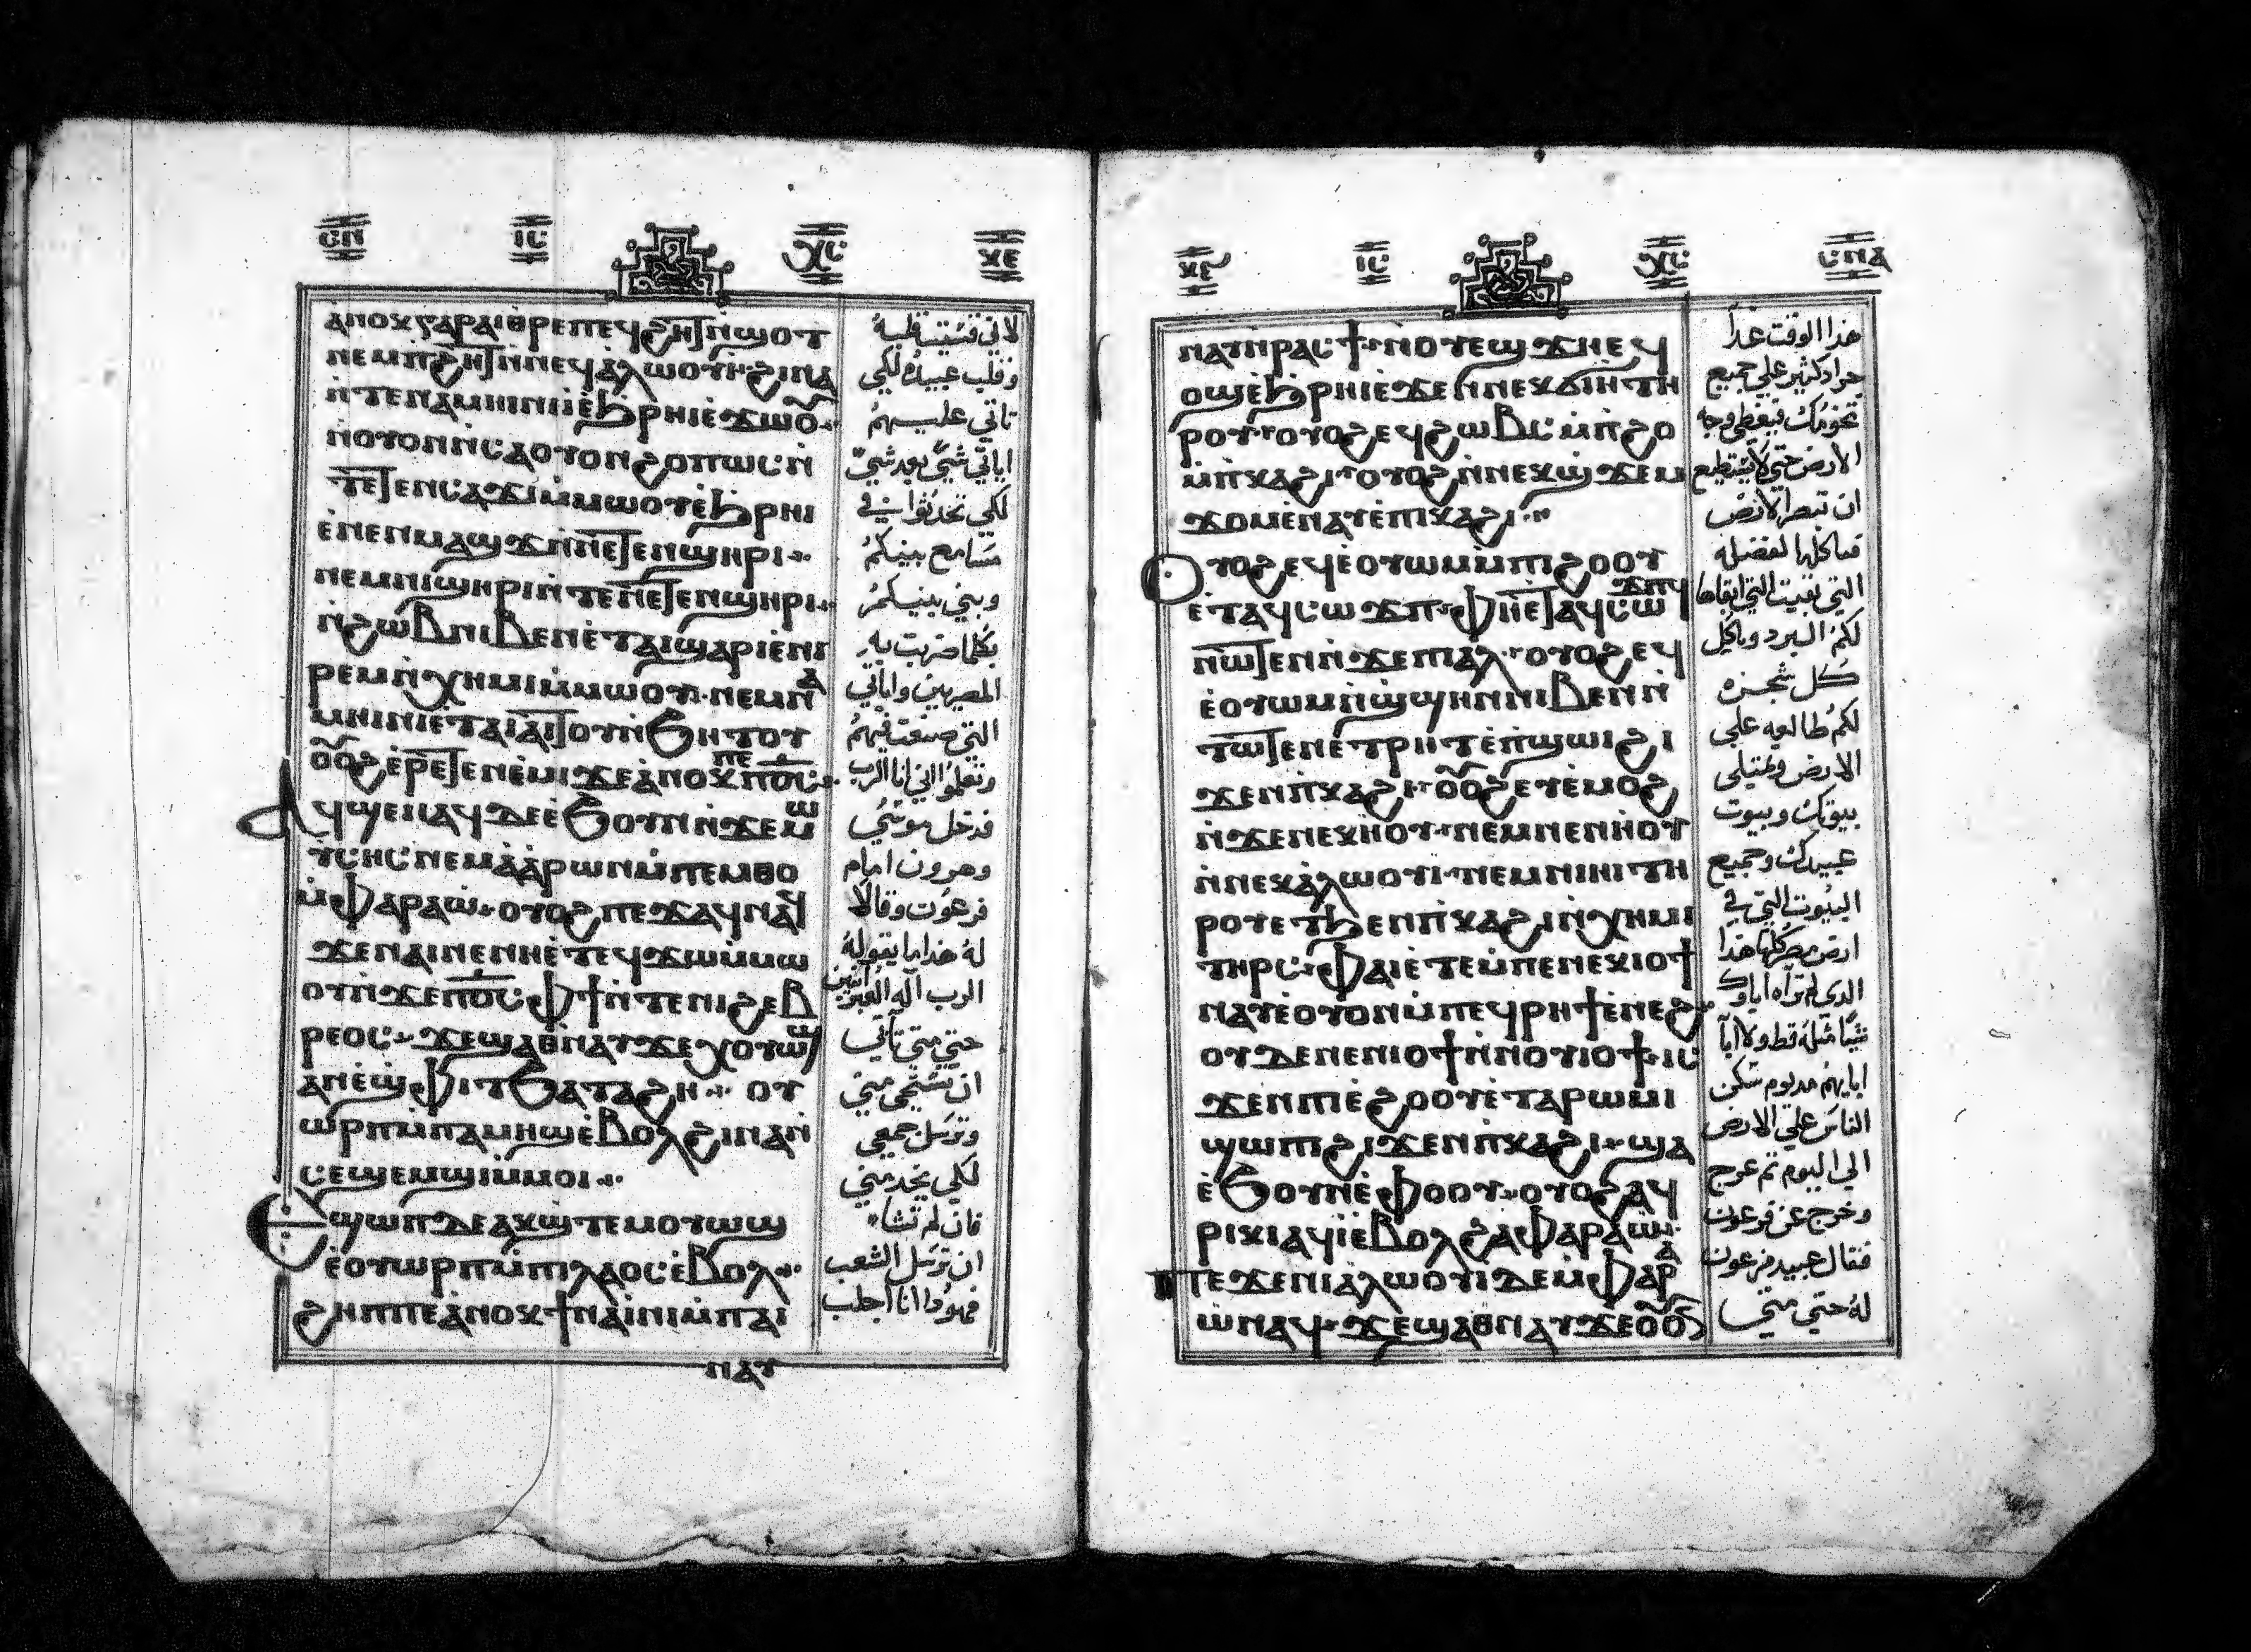 ⲥⲛ ⲓⲥ ⲭⲥ ⲕⲉ
ⲁⲛⲟⲕ ⲅⲁⲣ ⲁⲓⲑⲣⲉ ⲡⲉϥϩⲏⲧ ⲛ̀ϣⲟⲧ
ⲛⲉⲙ ⲡϩⲏⲧ ⲛ̀ⲛⲉϥⲁⲗⲱⲟⲩⲓ̀ ϩⲓⲛⲁ
ⲛ̀ⲧⲉ ⲛⲁⲙⲏⲓⲛⲓ ⲓ̀ ⲉ̀ϧⲣⲏⲓ ⲉ̀ϫⲱⲟ̅ⲩ
ⲛ̀ⲟⲩⲟⲛ ⲛ̀ⲥⲁ ⲟⲩⲟⲛ ϩⲟⲡⲱⲥ ⲛ̀
ⲧⲉⲧⲉⲛⲥⲁϫⲓ ⲙ̀ⲙⲱⲟⲩ ⲉ̀ϧⲣⲏⲓ
ⲉ̀ⲛⲉⲛⲙⲁϣϫ ⲛ̀ⲛⲉⲧⲉⲛϣⲏⲣⲓ
ⲛⲉⲙ ⲛⲓϣⲏⲣⲓ ⲛ̀ⲧⲉ ⲛⲉⲧⲉⲛϣⲏⲣⲓ
ⲛ̀ϩⲱⲃ ⲛⲓⲃⲉⲛ ⲉ̀ⲧⲁⲓϣⲁⲣⲓ ⲉ̀ⲛⲓ
ⲣⲉⲙⲛ̀ⲭⲏⲙⲓ ⲙ̀ⲙⲱⲟⲩ ⲛⲉⲙ ⲛⲁ
ⲙⲏⲓⲛⲓ ⲉⲧⲁⲓⲁⲓⲧⲟⲩ ⲛ̀ϧⲏⲧⲟⲩ
ⲟ̅ⲟϩ ⲉ̀ⲣⲉⲧⲉⲛⲉ̀ⲙⲓ ϫⲉ ⲁ̀ⲛⲟⲕ ⲡⲉ ⲡⲟ̅ⲥ̅
ⲁϥϣⲉⲛⲁϥ ⲇⲉ ⲉ̀ϧⲟⲩⲛ ⲛ̀ϫⲉ ⲙⲱ
ⲩⲥⲏⲥ ⲛⲉⲙ ⲁ̀ⲁ̀ⲣⲱⲛ ⲙ̀ⲡⲉⲙⲑⲟ
ⲙ̀ⲫⲁⲣⲁⲱ̀ ⲟⲩⲟϩ ⲡⲉϫⲁϥ ⲛⲁϥ
ϫⲉ ⲛⲁⲓ ⲛⲉ ⲛⲏⲉ̀ⲧⲉϥϫⲱ ⲙ̀ⲙⲱ
ⲟⲩ ⲛ̀ϫⲉ ⲡⲟ̅ⲥ̅ ⲫϯ ⲛ̀ⲧⲉ ⲛⲓϩⲉⲃ
ⲣⲉⲟⲥ ϫⲉ ϣⲁ ⲑⲛⲁⲩ ϫⲉ ⲭⲟⲩⲱϣ
ⲁⲛ ⲉ̀ϣⲫⲓⲧ ϧⲁⲧⲁϩⲏ ⲟⲩ
ⲱⲣⲡ ⲙ̀ⲡⲁⲙⲏϣ ⲉ̀ⲃⲟⲗ ϩⲓⲛⲁ ⲛ̀
ⲥⲉϣⲉⲙϣⲓ ⲙ̀ⲙⲟⲓ
ⲉϣⲱⲡ ⲇⲉ ⲁⲕϣⲧⲉⲙⲟⲩⲱϣ
ⲉ̀ⲟⲩⲱⲣⲡ ⲙ̀ⲡⲓⲗⲁⲟⲥ ⲉ̀ⲃⲟⲗ
ϩⲏⲡⲡⲉ ⲁ̀ⲛⲟⲕ ϯⲛⲁⲓ̀ⲛⲓ ⲙ̀ⲡⲁⲓ
ⲛⲁⲩ
لاني قسيت قلبه
وقلب عبيده لكي
تاتي عليهم
اياتي شي بعد شي
لكي تحدثوا في
مسامع بنيكم
وبني بنيكم
بكلما ضربت به
المصريين واياتي
التي صنعت فيهم
وتعلموا اني انا الرب
فدخل موسى
وهرون امام
فرعون وقالا
له هذا ما يقوله
الرب اله العبرانيين
حتى متى تابي
ان تستحي مني
وترسل جمعي
لكي يخدمني
فان لم تشاء
ان ترسل الشعب
فهوذا انا اجلب
ⲕⲉ ⲓⲥ ⲭⲥ ⲥⲛⲁ
ⲛⲁⲩ ⲛ̀ⲣⲁⲥϯ ⲛ̀ⲟⲩⲉϣϫ ⲛⲉϥ
ⲟϣ ⲉ̀ϧⲣⲏⲓ ⲉ̀ϫⲉⲛ ⲛⲉⲕϭⲓⲏ ⲧⲏ
ⲣⲟⲩ ⲟⲩⲟϩ ⲉϥϩⲱⲃⲥ ⲙ̀ⲡϩⲟ
ⲙ̀ⲡⲕⲁϩⲓ ⲟⲩⲟϩ ⲛ̀ⲛⲉⲕϣϫⲉⲙ
ϫⲟⲙ ⲉ̀ⲛⲁⲩ ⲉ̀ⲡⲓⲕⲁϩⲓ
ⲟⲩⲟϩ ⲉϥⲉ̀ⲟⲩⲱⲙ ⲙ̀ⲡⲓϩⲟⲟⲩ
ⲉ̀ⲧⲁϥⲥⲱϫⲡ ⲫⲏⲉⲧⲁϥⲥⲱϫⲡϥ
ⲛⲱⲧⲉⲛ ⲛ̀ϫⲉ ⲡⲓⲁⲗ ⲟⲩⲟϩ ⲉϥ
ⲉ̀ⲟⲩⲱⲙ ⲛ̀ϣϣⲏⲛ ⲛⲓⲃⲉⲛ ⲛ̀
ⲧⲱⲧⲉⲛ ⲉ̀ⲧⲣⲏⲧ ⲉ̀ⲡϣⲱⲓ ϩⲓ
ϫⲉⲛ ⲡⲕⲁϩⲓ ⲟ̅ⲟϩ ⲉⲩⲉ̀ⲙⲟϩ
ⲛ̀ϫⲉ ⲛⲉⲕⲏⲟⲩ ⲛⲉⲙ ⲛⲉⲛⲏⲟⲩ
ⲛ̀ⲛⲉⲕⲁ̀ⲗⲱⲟⲩⲓ ⲛⲉⲙ ⲛⲓⲏⲓ ⲧⲏ
ⲣⲟⲩ ⲉⲧϧⲉⲛ ⲡⲕⲁϩⲓ ⲛ̀ⲭⲏⲙⲓ
ⲧⲏⲣϥ ⲫⲁⲓ ⲉ̀ⲧⲉ ⲙ̀ⲡⲉ ⲛⲉⲕⲓⲟϯ
ⲛⲁⲩ ⲉ̀ⲟⲩⲟⲛ ⲙ̀ⲡⲉϥⲣⲏϯ ⲉ̀ⲛⲉϩ
ⲟⲩⲇⲉ ⲛⲉⲛⲓⲟϯ ⲛ̀ⲛⲟⲩⲓⲟϯ ⲓⲥ
ϫⲉⲛ ⲡⲓⲉ̀ϩⲟⲟⲩ ⲉ̀ⲧⲁ ⲣⲱⲙⲓ
ϣⲱⲡⲓ ϩⲓϫⲉⲛ ⲡⲕⲁϩⲓ ϣⲁ
ⲉ̀ϧⲟⲩⲛ ⲉ̀ⲫⲟⲟⲩ ⲟⲩⲟϩ ⲁϥ
ⲣⲓⲕⲓ ⲁϥⲓ̀ ⲉ̀ⲃⲟⲗ ϩⲁ ⲫⲁⲣⲁⲱ
ⲡⲉϫⲉ ⲛⲓⲁ̀ⲗⲱⲟⲩⲓ ⲇⲉ ⲙ̀ⲫⲁⲣⲁ
ⲱ̀ ⲛⲁϥ ϫⲉ ϣⲁ ⲑⲛⲁⲩ ϫⲉ ⲟ̅ⲟ
هذا الوقت غدا
جراد كثير على جميع
تخومك فيغطي وجه
الارض حتى لا تستطيع
ان تبصر الارض
فياكلها لفضله
التي بقيت التي ابقاها
لكم البرد وياكل
كل شجره
لكم طالعه على
الارض وتمتلي
بيوتك وبيوت
عبيدك وجميع
البيوت التي في
ارض مصر كلها هذا
الذي لم تراه اباوك
شيا مثله قط ولا ابا
ابايهم مد يوم سكن
الناس على الارض
الى اليوم ثم عرج
وخرج عن فرعون
فقال عبيد فرعون
له حتى متى